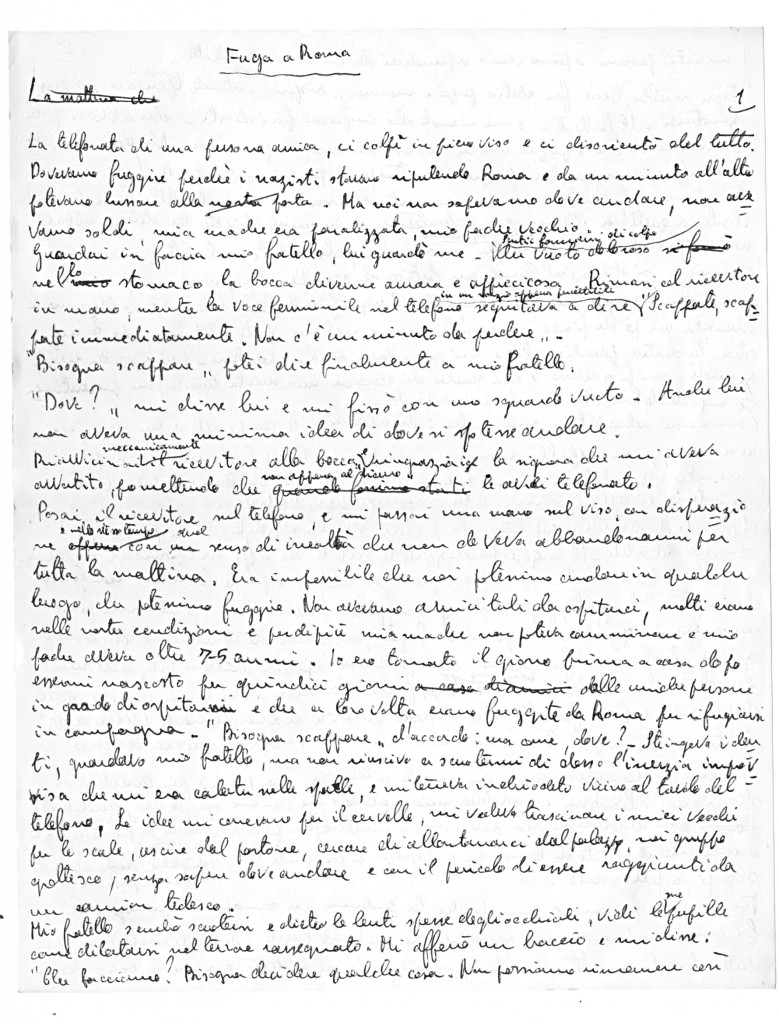 Fuga a Roma
La mattina che
1
La telefonata di una persona amica, ci colpì in pieno viso e ci disorientò del tutto.
Dovevamo fuggire perchè i nazisti stavano ripulendo Roma e da un minuto all'altro
potevano bussare alla nostra porta. Ma noi non sapevamo dove andare, non ave=
vamo soldi mia madre era paralizzata, mio padre vecchio.
Guardai in faccia mio fratello, lui guardò me - un vuoto doloroso si fece
nello mio stomaco la bocca divenne amara e appiccicosa. Rimasi col ricevitore
in mano, mentre la voce femminile nel telefono in un soffio appena seguitava a dire "Scappate, scap=
pate immediatamente. Non c'è un minuto da perdere" -
"Bisogna scappare" potei dire finalmente a mio fratello.
"Dove?" mi disse lui e mi fissò con uno sguardo vuoto - Anche lui
non aveva una minima idea di dove si potesse andare.
meccanicamente
Riavvicinai il ricevitore alla bocca, ringraziai la signora che mi aveva
non appena al sicuro
avvertito, promettendo che quando fossimo stati le avrei telefonato.
Posai il ricevitore sul telefono, e mi passai una mano sul viso, con disperazio
e nello stesso tempo quel
ne appena con un senso di inealtà che non doveva abbandonarmi per
tutta la mattina. Era impossibile che noi potessimo andare in qualche
luogo, che potessimo fuggire. Non avevamo amici tali da ospitarci, molti erano
nelle nostre condizioni e perdipiù mia madre non poteva camminare e mio
padre aveva oltre 75 anni. Io ero tornato il giorno prima a casa dopo
essermi nascosto per quindici giorni a casa di amici dalle uniche persone
in grado di ospitarmi e che a loro volta erano fuggite da Roma per rifugiarsi
in campagna - "Bisogna scappare" d'accordo: ma come, dove? - Stringevo i den
ti, guardavo mio fratello, ma non riuscivo a scuotermi di dosso l'inerzia improv
visa che mi era calata nelle spalle, e mi teneva inchiodato vicino al tavolo del
telefono. Le idee mi correvano per il cervello, mi vedevo trascinare i miei vecchi
per le scale, uscire dal portone, cercare di allontanarci dal palazzo, un gruppo
grottesco, senza sapere dove andare e con il pericolo di essere raggiunti da
un camion tedesco.
Mio fratello sembrò scuotersi e dietro le lenti spesse degli occhiali, vidi le sue pupille
come dilatarsi nel terrore rassegnato. Mi afferrò un braccio e mi disse:
"Che facciamo? Bisogna decidere qualche cosa. Non possiamo rimanere così